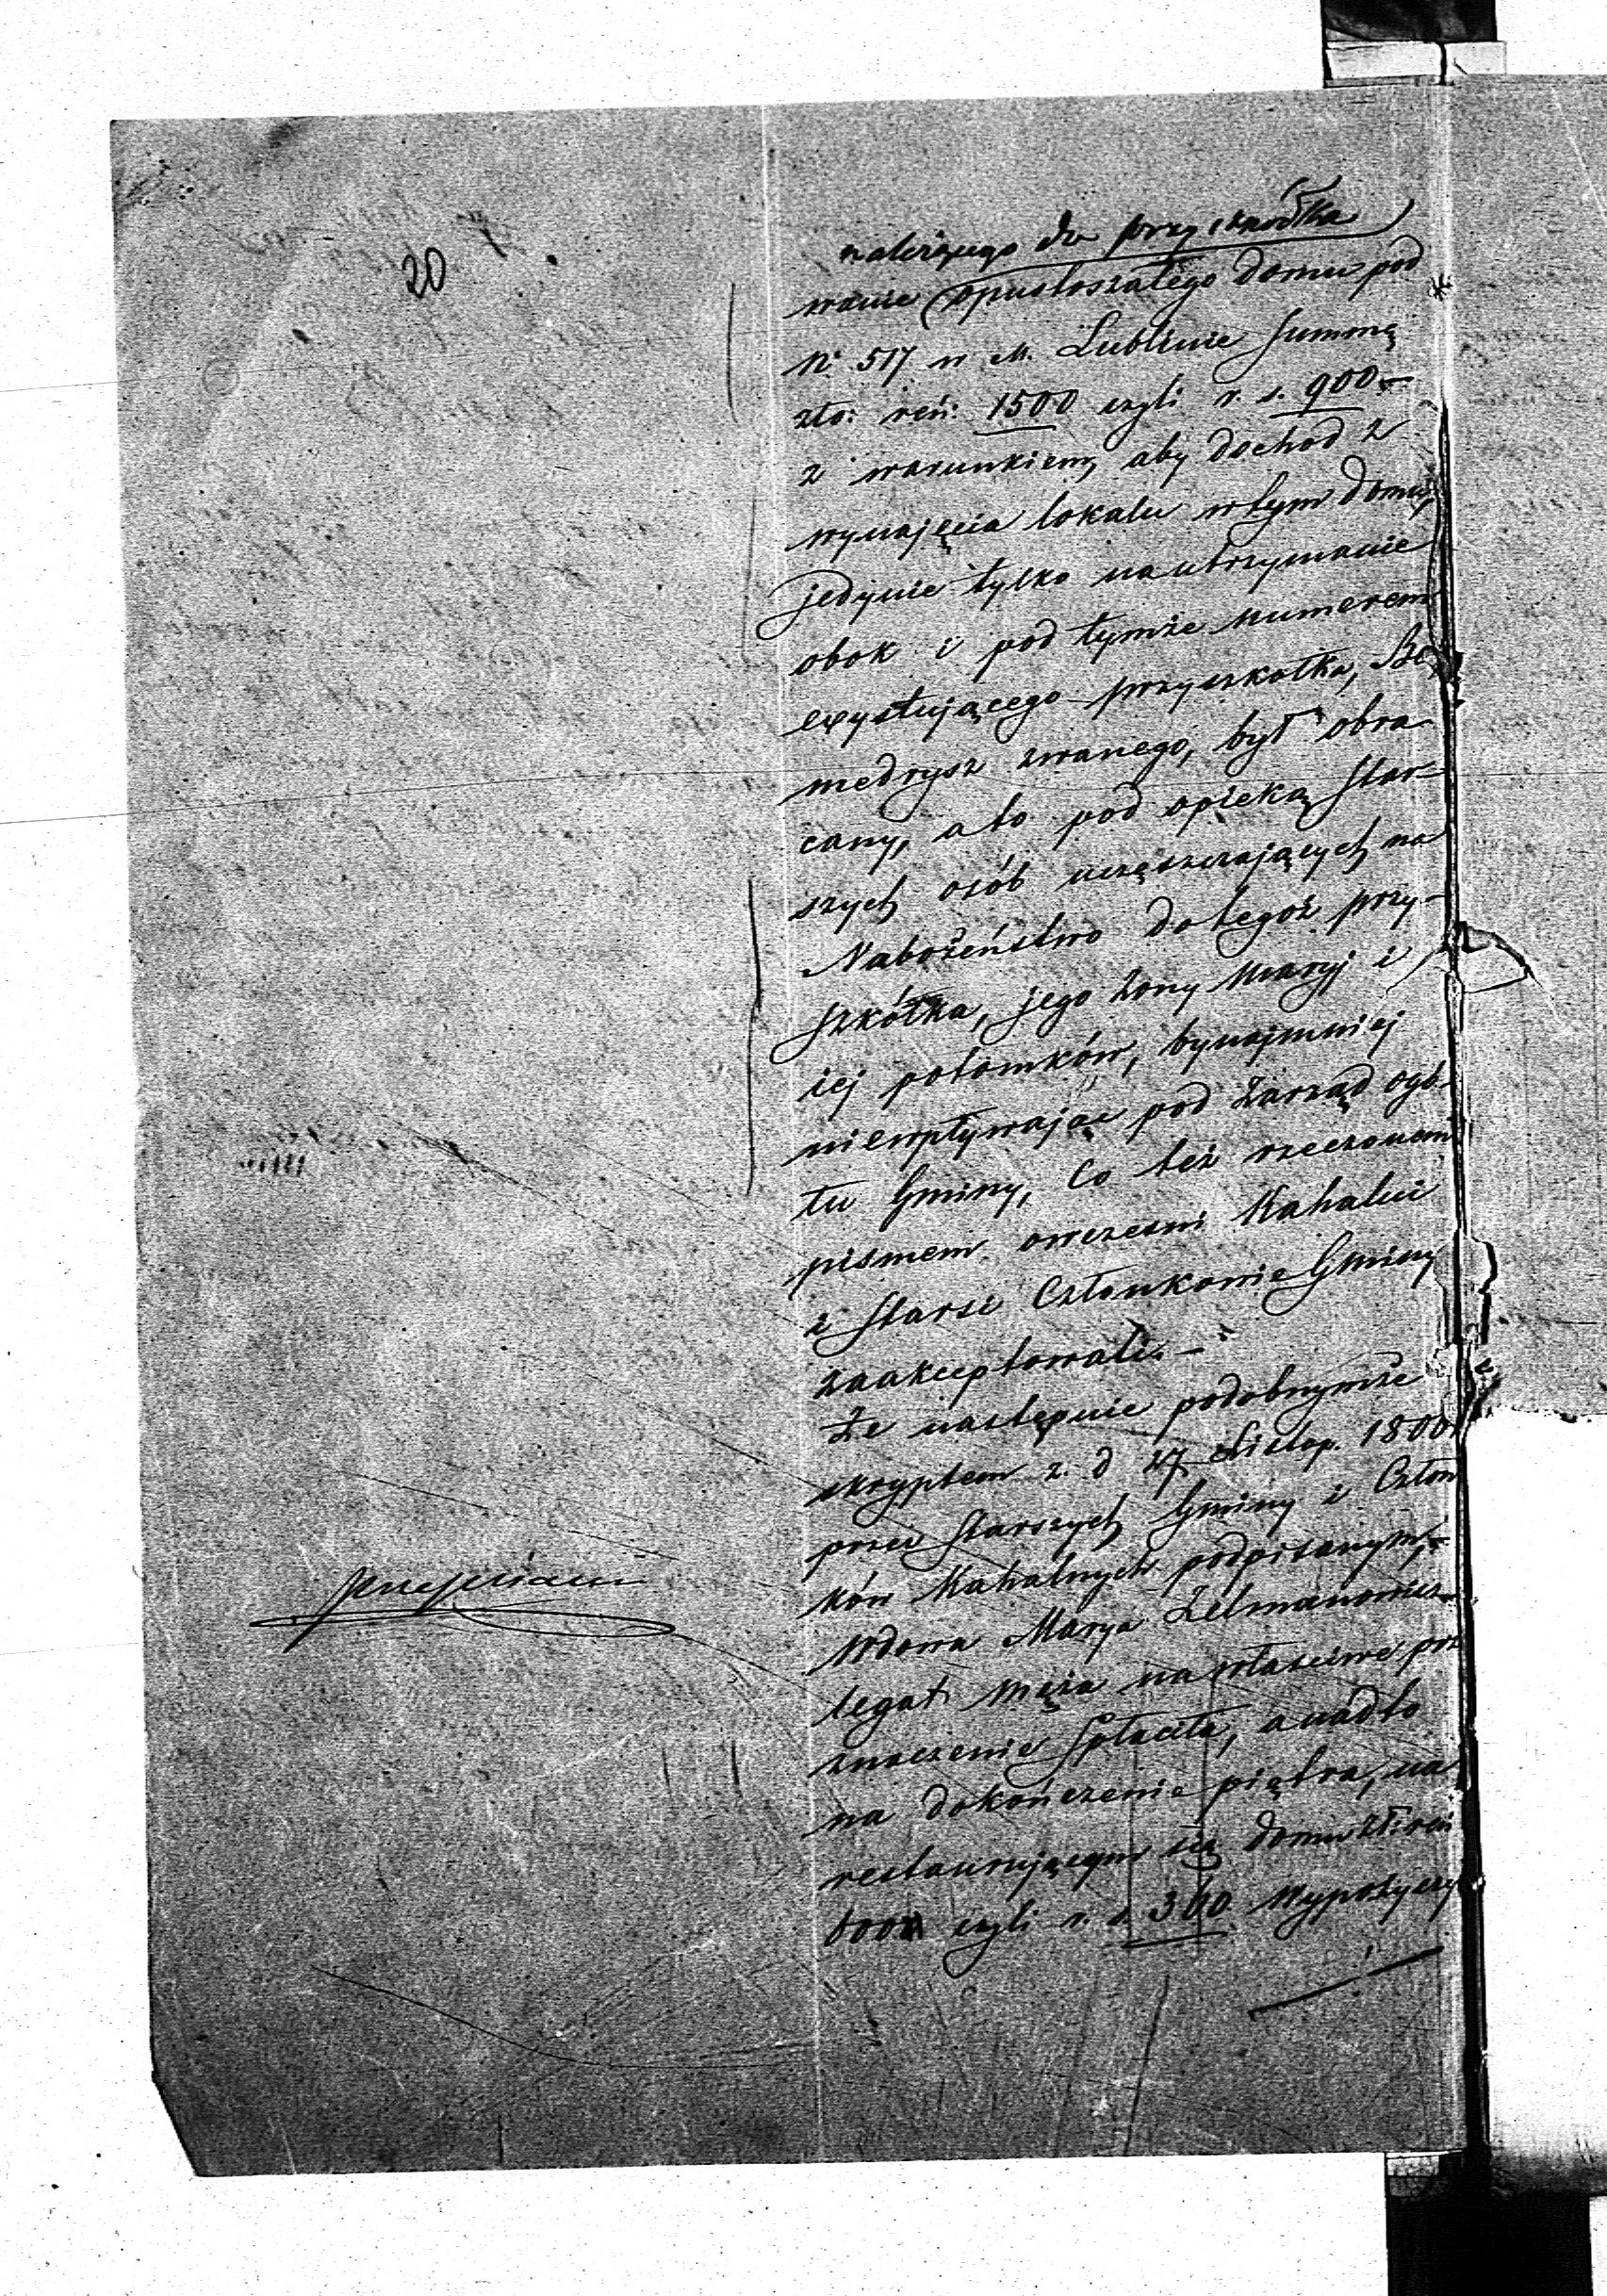 20
należącego do przyszkółka
wanie opustoszałego domu pod
N: 517 w M. Lublinie Summę
zło: reń: 1500 czyli r. s. 900.-
z warunkiem, aby dochod z
wynajęcia lokalu w tym domu,
jedynie tylko na utrzymanie
obok i pod tymże numerem
exystującego przyszkołka, Be
medrysz zwanego, był obra
cany, a to pod opieką Star-
szych osób uczęszczających na
Nabożeństwo do tegoż przy-
szkółka, jego żony Maryj i
iej potomków, bynajmniej
niewpływając pod Zarząd ogó-
łu Gminy, Co też rzeczonem
pismem owczesni Kahalni
i Starsi Członkowie Gminy
zaakceptowali. -
Że następnie podobnymże
skryptem z. d 27 Listop. 1800
przez Starszych Gminy i Człon
ków Kahalnych podpisanym,-
Wdowa Marya Zelmanowicz
legat męża na właściwe prze
znaczenie spłaciła, a nadto
na dokończenie piętra, na
restaurującym się domu zł: reń
600 czyli r. s. 360 Wypożyczy